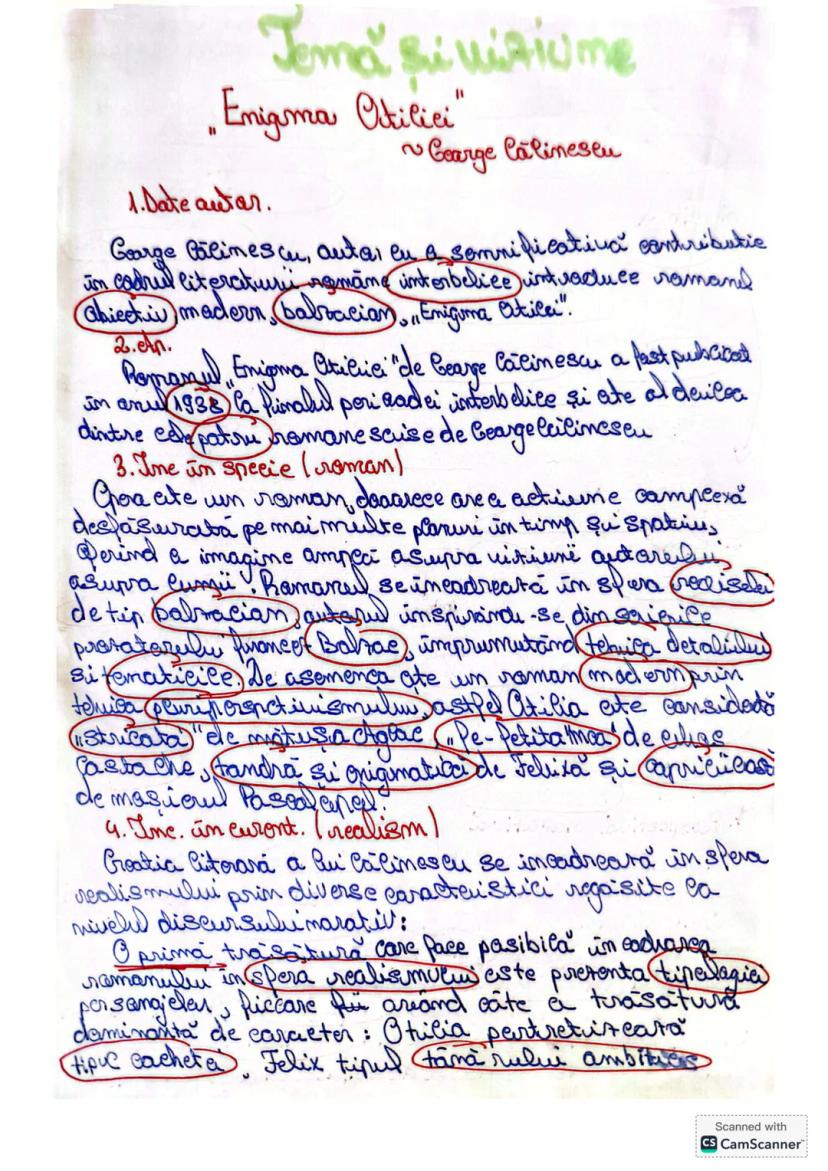 Temă și viziune
„Enigma Otiliei"
~ George Călinescu
1. Date autor.
George Călinescu, autor cu o semnificativă contribuție
în cadrul literaturii române interbelice introduce romanul
obiectiv, modern, balzacian, „Enigma Otiliei".
2. Ap.
Romanul „Enigma Otiliei" de George Călinescu a fost publicat
în anul 1938 la finalul perioadei interbelice și este al doilea
dintre cele patru romane scrise de George Călinescu
3. Înc în specie (roman)
Opera este un roman, deoarece are o acțiune complexă
desfășurată pe mai multe planuri în timp și spațiu,
oferind o imagine amplă asupra viziunii autorului
asupra lumii. Romanul se încadrează în sfera
de tip balzacian, autorul inspirându-se din scrierile
prozatorului francez Balzac, împrumutând tehnica detaliului
si tematicile. De asemenea este un roman modern prin
tehnica pluriperspectivismului, astfel Otilia este considerată
"stricată" de mătușa Aglae, „Fe-Fetița mea" de
Costache, tandră și enigmatică de Felix și capricioasă
de moșierul Pascalopol.
4. Înc. în curent. (realism)
Creația literară a lui Călinescu se încadrează în sfera
realismului prin diverse caracteristici regăsite la
nivelul discursului narativ:
O primă trăsătură care face posibilă încadrarea
romanului în sfera realismului este prezența tipologiei
personajelor, fiecare având câte o trăsătură
dominantă de caracter: Otilia portretizează
tipul cochetei, Felix tipul tânărului ambițios
Scanned with
CS CamScanner